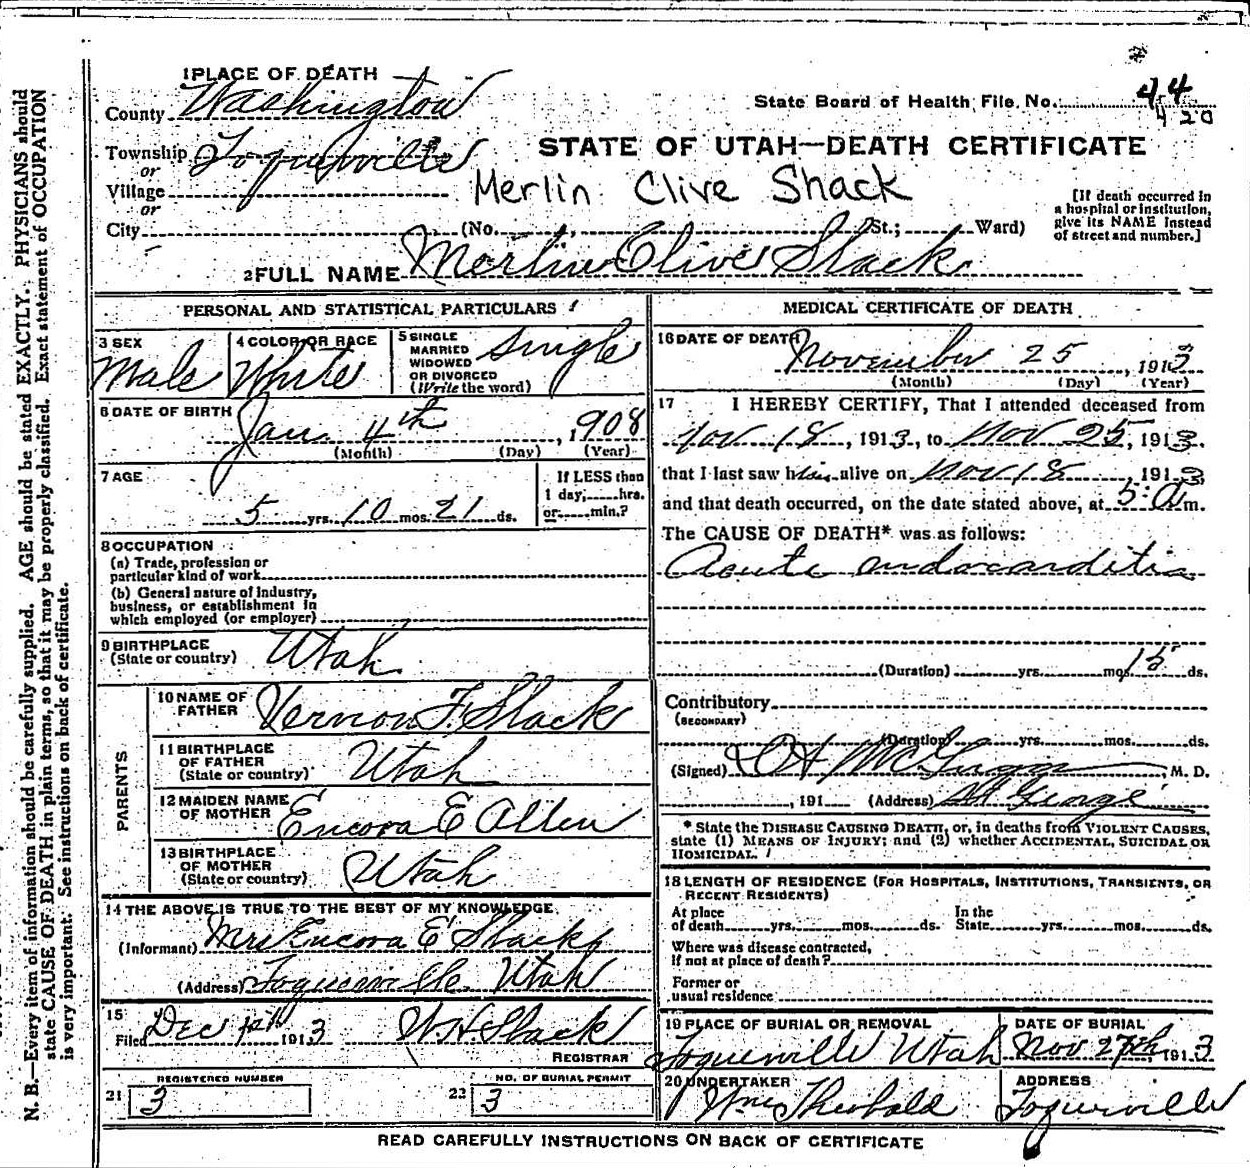 1 PLACE OF DEATH
County Washington
State Board of Health File No. 44
420
Township Toquerville
or
Village
or
STATE OF UTAH—DEATH CERTIFICATE
Merlin Clive Shack
City (No. , St.; Ward)
[If death occurred in
a hospital or institution,
give its NAME instead
of street and number.]
2 FULL NAME Merlin Clive Slack
PERSONAL AND STATISTICAL PARTICULARS
3 SEX
Male
4 COLOR OR RACE
White
5 SINGLE
MARRIED
WIDOWED
OR DIVORCED
(Write the word)
Single
6 DATE OF BIRTH
Jan. 4th, 1908
(Month) (Day) (Year)
7 AGE
5 yrs. 10 mos. 21 ds.
If LESS than
1 day, hrs.
or min.?
8 OCCUPATION
(a) Trade, profession or
particular kind of work
(b) General nature of industry,
business, or establishment in
which employed (or employer)
9 BIRTHPLACE
(State or country) Utah
PARENTS
10 NAME OF
FATHER Vernon F. Slack
11 BIRTHPLACE
OF FATHER
(State or country) Utah
12 MAIDEN NAME
OF MOTHER Encora E Allen
13 BIRTHPLACE
OF MOTHER
(State or country) Utah
14 THE ABOVE IS TRUE TO THE BEST OF MY KNOWLEDGE
(Informant) Mrs Encora E Slack
(Address) Toquerville Utah
15
Filed Dec 1913 W. H. Slack
REGISTRAR
REGISTERED NUMBER
21 3
NO. OF BURIAL PERMIT
22 3
MEDICAL CERTIFICATE OF DEATH
16 DATE OF DEATH November 25, 1913
(Month) (Day) (Year)
17 I HEREBY CERTIFY, That I attended deceased from
Nov 18, 1913, to Nov 25, 1913.
that I last saw him alive on Nov 18, 1913
and that death occurred, on the date stated above, at 5:a m.
The CAUSE OF DEATH* was as follows:
Acute endocarditis
(Duration) yrs. mos. 15 ds.
Contributory
(SECONDARY)
(Duration) yrs. mos. ds.
(Signed) M. D.
, 191 (Address) St George
* State the DISEASE CAUSING DEATH, or, in deaths from VIOLENT CAUSES,
state (1) MEANS OF INJURY; and (2) whether ACCIDENTAL, SUICIDAL OR
HOMICIDAL.
18 LENGTH OF RESIDENCE (FOR HOSPITALS, INSTITUTIONS, TRANSIENTS, OR
RECENT RESIDENTS)
At place
of death yrs. mos. ds.
In the
State yrs. mos. ds.
Where was disease contracted,
if not at place of death?
Former or
usual residence
19 PLACE OF BURIAL OR REMOVAL
Toquerville Utah
DATE OF BURIAL
Nov 27th, 1913
20 UNDERTAKER
Wm Theobald
ADDRESS
Toquerville
READ CAREFULLY INSTRUCTIONS ON BACK OF CERTIFICATE
N. B.—Every item of information should be carefully supplied. AGE should be stated EXACTLY. PHYSICIANS should
state CAUSE OF DEATH in plain terms, so that it may be properly classified. Exact statement of OCCUPATION
is very important. See instructions on back of certificate.